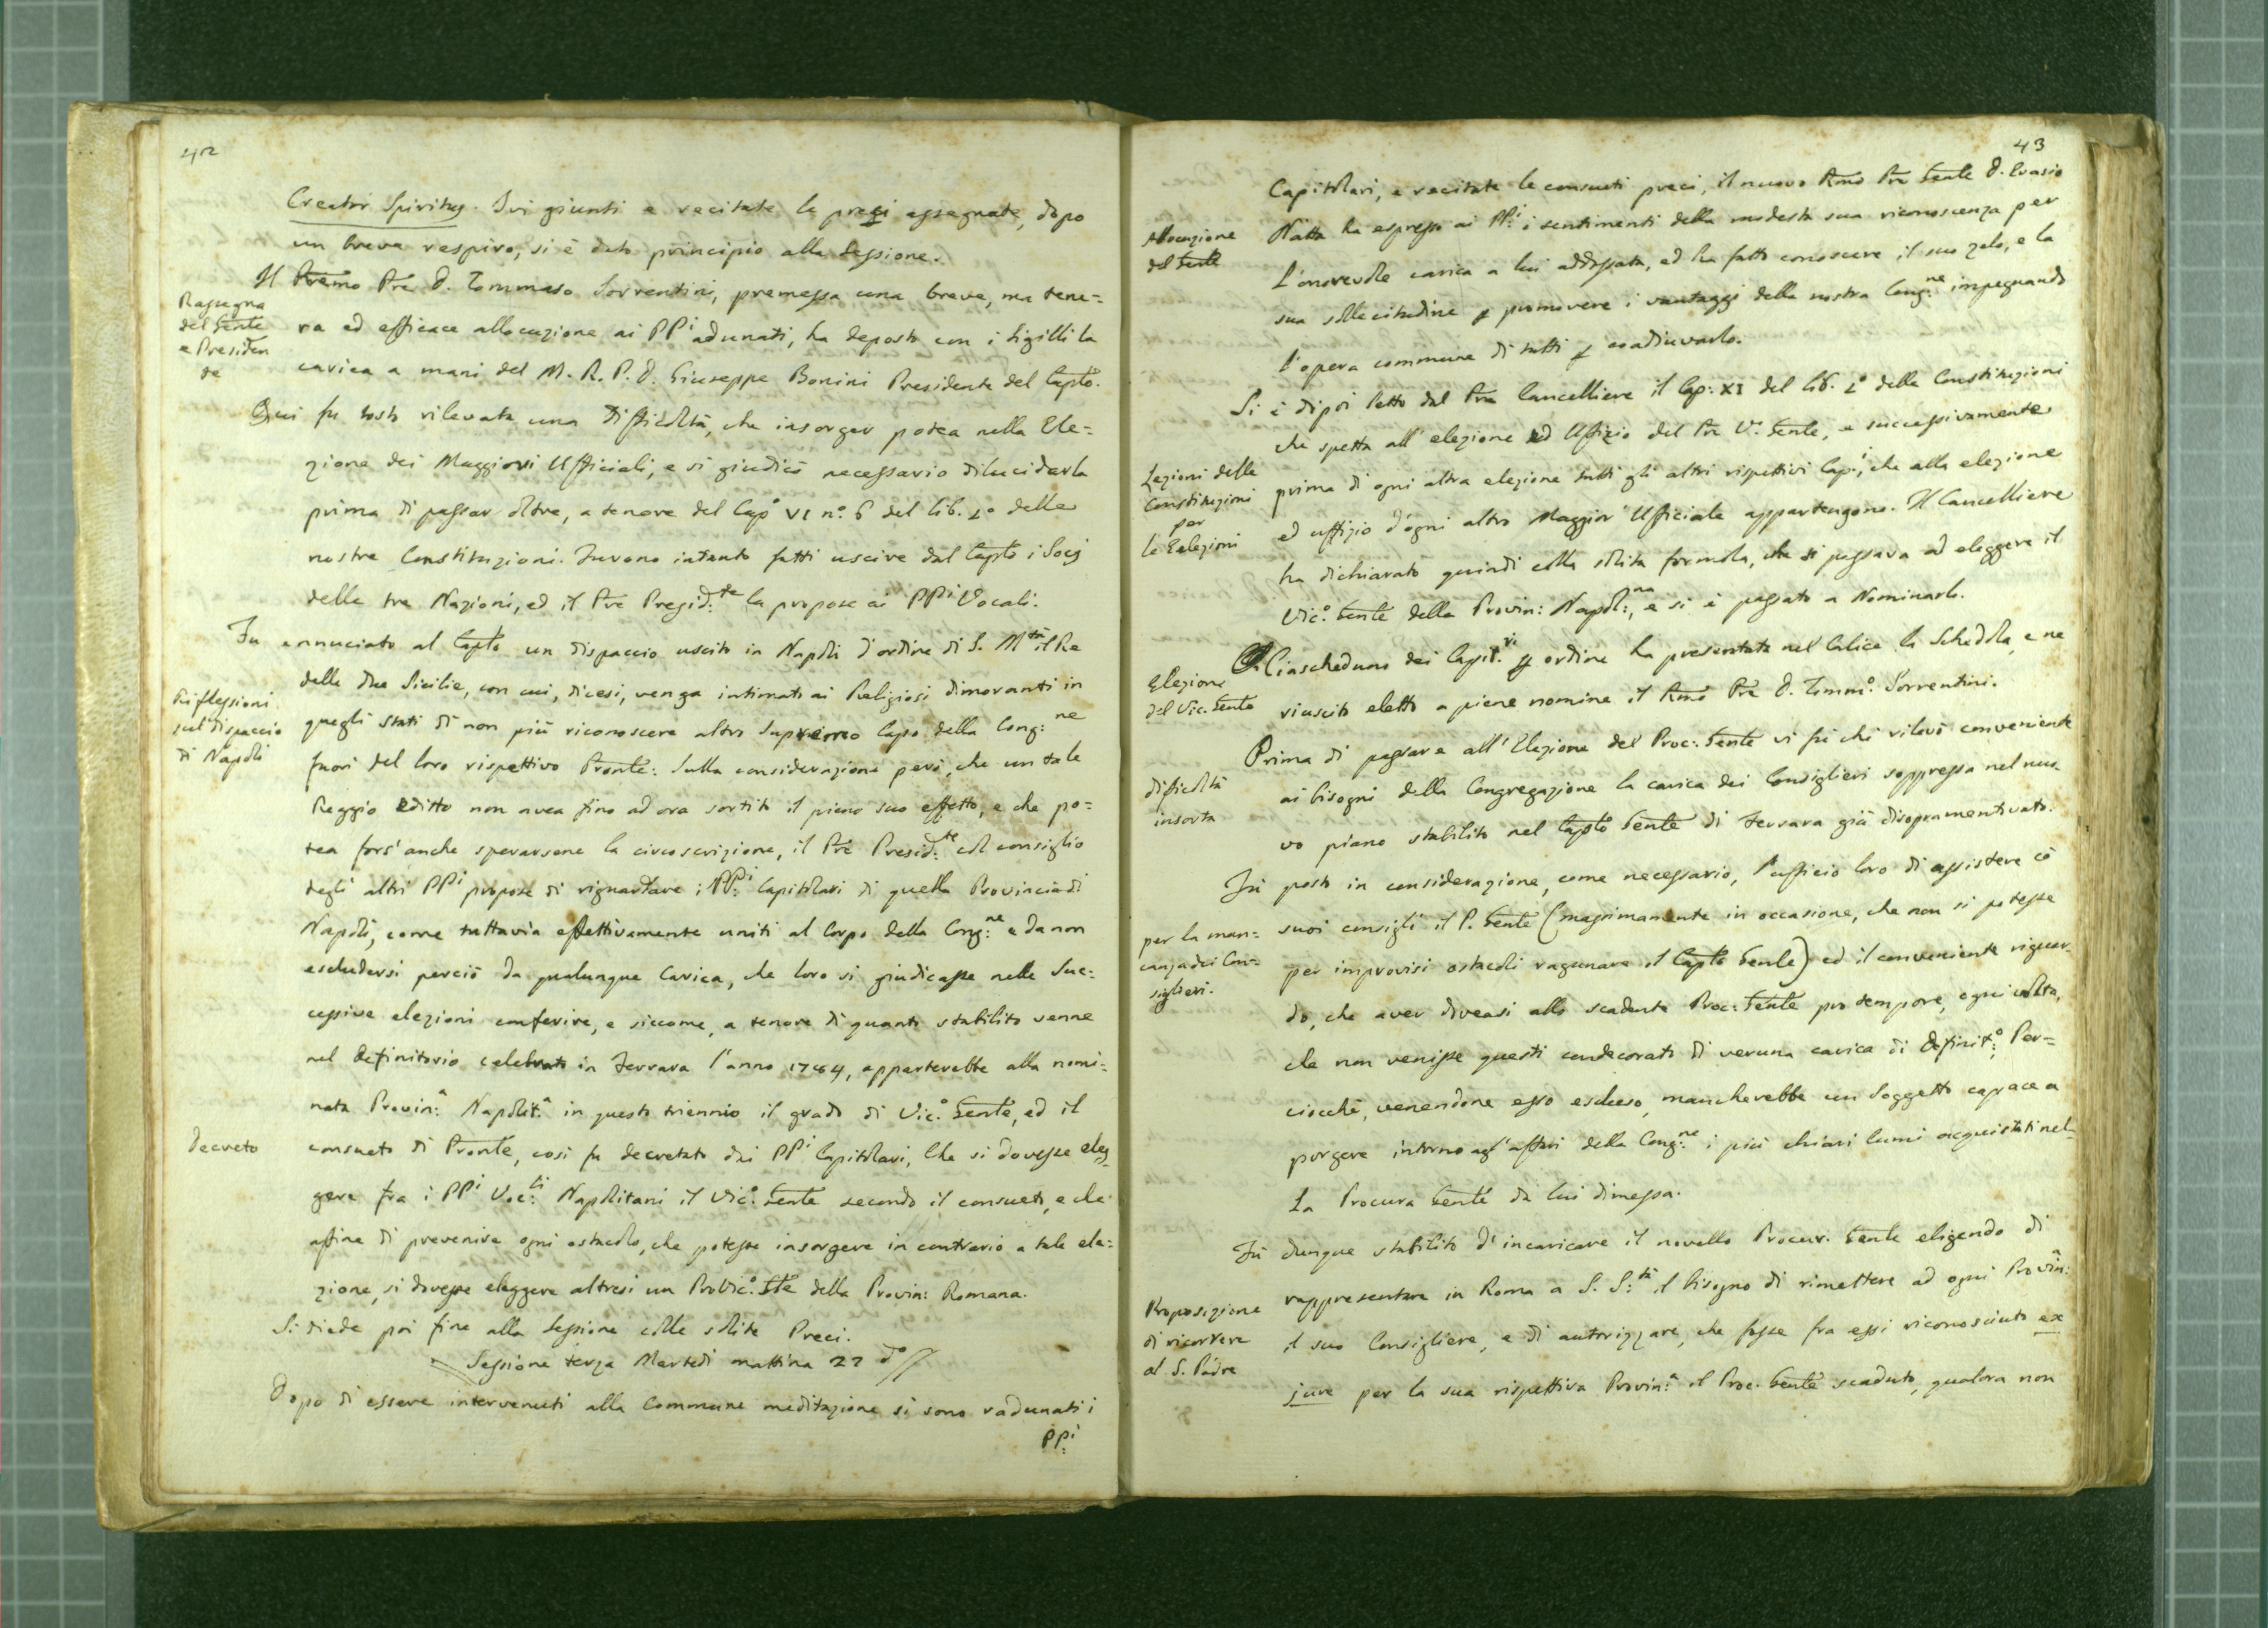 42
Creator Spiritus. Ivi giunti e recitate le preci assegnate, dopo
un breve respiro, si è dato principio alla Sessione.
Rassegna
del Gente
e Presiden
te
Il Premo Pre D. Tommaso Sorrentini, premessa una breve, ma tene=
ra ed efficace allocuzione ai PPi adunati, ha deposto con i Sigilli la
carica a mani del M. R. P. D. Giuseppe Bonini Presidente del Caplo.
Qui fu tosto rilevata una Difficoltà, che insorger potea nella Ele=
zione dei Maggiori Ufficiali, e si giudicò necessario dilucidarla
prima di passar oltre, a tenore del Capo VI no. 6 del lib. 1o delle
nostre Constituzioni. Furono intanto fatti uscire dal Caplo i Socj
delle tre Nazioni, ed il Pre Presid:te la propose ai PPi Vocali.
Riflessioni
sul dispaccio
di Napoli
Fu annuciato al Caplo un dispaccio uscito in Napoli d'ordine di S. Mtà il Re
delle due Sicilie, con cui, dicesi, venga intimato ai Religiosi dimoranti in
quegli stati di non più riconoscere altro Supremo Capo della Cong:ne
fuori del loro rispettivo Pronle: Sulla considerazione però, che un tale
Reggio Editto non avea fino ad ora sortito il pieno suo effetto, e che po=
tea fors' anche sperarsene la circoscrizione, il Pre Presid:te col consiglio
degli altri PPi propose di riguardare i PP:i Capitolari di quella Provincia di
Napoli, come tuttavia effettivamente uniti al Corpo della Cong:ne e da non
escludersi perciò da qualunque Carica, che loro si giudicasse nelle Suc=
cessive elezioni conferire, e siccome, a tenore di quanto stabilito venne
nel definitorio celebrato in Ferrara l'anno 1784, apparterebbe alla nomi=
nata Provin:a Napolit:a in questo triennio il grado di Vic:o Gente, ed il
Decreto
consueto di Pronle, così fu decretato dai PPi Capitolari, Che si dovesse eleg
gere fra i PPi Voc:li Napolitani il Vic:o Gente secondo il consueto, e che
affine di prevenire ogni ostacolo, che potesse insorgere in contrario a tale ele=
zione, si dovesse eleggere altresi un ProVic:o Gle della Provin: Romana.
Si diede poi fine alla Sessione colle solite Preci.
Sessione terza Martedì mattina 22 do
Dopo di essere intervenuti alla Commune meditazione si sono radunati i
PP:i
43
Capitolari, e recitate le consueti preci, il nuovo Rmo Pre Gente D. Evasio
Allocuzione
del Gente
Natta ha espresso ai PP:i i sentimenti della modesta sua riconoscenza per
l'onorevole carica a lui addossata, ed ha fatto conoscere il suo zelo, e la
sua sollecitudine p promovere i vantaggi della nostra Cong:ne impegnando
l'opera commune di tutti p coadiuvarlo.
Si è dipoi letto dal Pre Cancelliere il Cap: XI del lib. 1o delle Constituzioni
che spetta all' elezione ed Uffizio del Pre V.o Gente, e successivamente
Lezioni delle
Constituzioni
per
le Eelezioni
prima di ogni altra elezione tutti gli altri rispettivi Cap:i, che alla elezione
ed uffizio d'ogni altro Maggior Ufficiale appartengono. Il Cancelliere
ha dichiarato quindi colla solita formola, che si passava ad eleggere il
Vic:o Gente della Provin: Napol:na, e si è passato a Nominarlo.
Elezione
del Vic. Gente
Ciascheduno dei Capit:ri p ordine ha presentata nel Calice la Schedola, e ne
riuscito eletto a piene nomine il Rmo Pre D. Tomm:o Sorrentini.
difficoltà
insorta
Prima di passare all' Elezione del Proc: Gente vi fù chi rilevò conveniente
ai bisogni della Congregazione la carica dei Consiglieri soppressa nel nuo
vo piano stabilito nel Caplo Gente di Ferrara già disopramentivato.
per la man=
canza dei Con=
siglieri.
Fù posto in considerazione, come necessario, l'ufficio loro di assistere cò
suoi consigli il P. Gente (massimamente in occasione, che non si potesse
per improvisi ostacoli ragunare il Caplo Genle) ed il conveniente riguar
do, che aver doveasi allo scadente Proc: Gente pro tempore, ogni volta,
che non venisse questi condecorato di veruna carica di definit:o; Per=
ciocchè, venendone esso escluso, mancherebbe un Soggetto capace a
porgere intorno agl'affari della Cong:ne i più chiari lumi acquistati nel
la Procura Gente da lui dimessa.
Proposizione
di ricorrere
al S. Padre
Fù dunque stabilito d'incaricare il novello Procur. Gente eligendo di
rappresentare in Roma a S. S:tà il bisogno di rimettere ad ogni Provin:
il suo Consigliere, e di autorizzare, che fosse fra essi riconosciuto ex
jure per la sua rispettiva Provin:a il Proc. Gente scaduto, qualora non